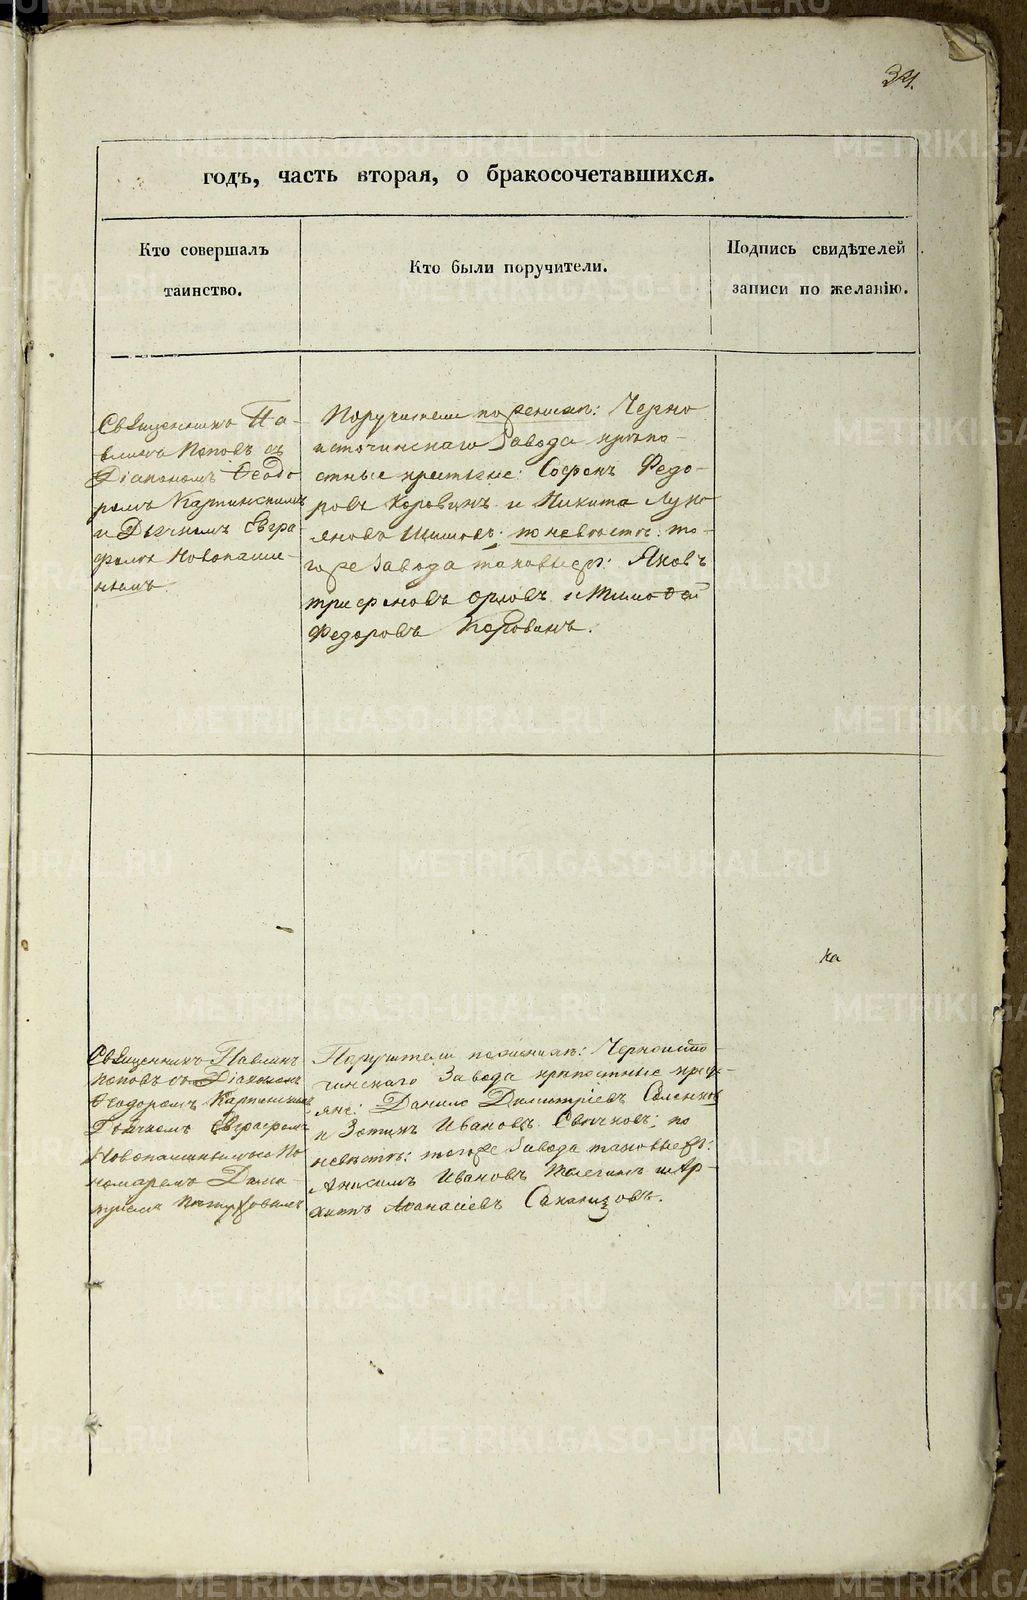 34.
годъ, часть вторая, о бракосочетавшихся.
Кто совершалъ
таинство.
Кто были поручители.
Подпись свидѣтелей
записи по желанію.
Священникъ Па-
влинъ Поповъ съ
Діакономъ Ѳеодо
ромъ Карпинскимъ
и Дьячкомъ Евгра-
фомъ Новопаши-
нымъ
Поручители по женихѣ: Черно
источинскаго Завода крѣпо-
стные крестьяне: Софонъ Федо-
ровъ Коровинъ и Никита Лукь
яновъ Шишовъ; по невѣстѣ: то-
гоже Завода таковыежъ: Яковъ
Трифоновъ Орловъ и Тимофей
Федоровъ Коровинъ.
ка
Священникъ Павлинъ
Поповъ съ Діакономъ
Ѳеодоромъ Карпинскимъ
Дьячкомъ Евграфомъ
Новопашинымъ и По
номаремъ Дими-
тріемъ
Поручители по женихѣ: Черноисто-
чинскаго Завода крѣпостные кресть-
яне: Данило Димитріевъ
и Зотикъ Ивановъ Свѣчковъ; по
невѣстѣ: тогоже Завода таковыежъ:
Анисимъ Ивановъ и Ар-
хипъ Аѳанасіевъ